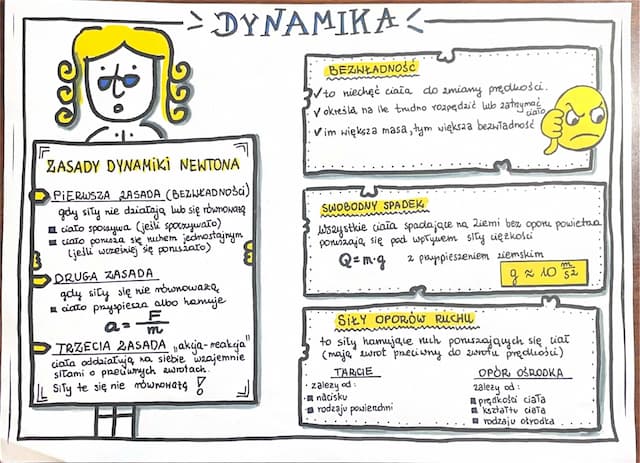 DYNAMIKA
ZASADY DYNAMIKI NEWTONA
PIERWSZA ZASADA (BEZWŁADNOŚCI)
gdy siły nie działają lub się równoważą
ciało spoczywa (jeśli spoczywało)
ciało porusza się ruchem jednostajnym
(jeśli wcześniej się poruszało)
DRUGA ZASADA
gdy siły się nie równoważą
ciało przyspiesza albo hamuje
a = F/m
TRZECIA ZASADA „akcja-reakcja”
ciała oddziałują na siebie wzajemnie
siłami o przeciwnych zwrotach.
Siły te się nie równoważą!
BEZWŁADNOŚĆ
✓ to niechęć ciała do zmiany prędkości.
✓ określa na ile trudno rozpędzić lub zatrzymać
ciało
✓ im większa masa, tym większa bezwładność
SWOBODNY SPADEK
Wszystkie ciała spadające na Ziemi bez oporu powietrza
poruszają się pod wpływem siły ciężkości
Q=m·g z przyspieszeniem ziemskim
g ≈ 10 m/s2
SIŁY OPORÓW RUCHU
to siły hamujące ruch poruszających się ciał
(mają zwrot przeciwny do zwrotu prędkości)
TARCIE
zależy od:
nacisku
rodzaju powierzchni
OPÓR OŚRODKA
zależy od:
prędkości ciała
kształtu ciała
rodzaju ośrodka